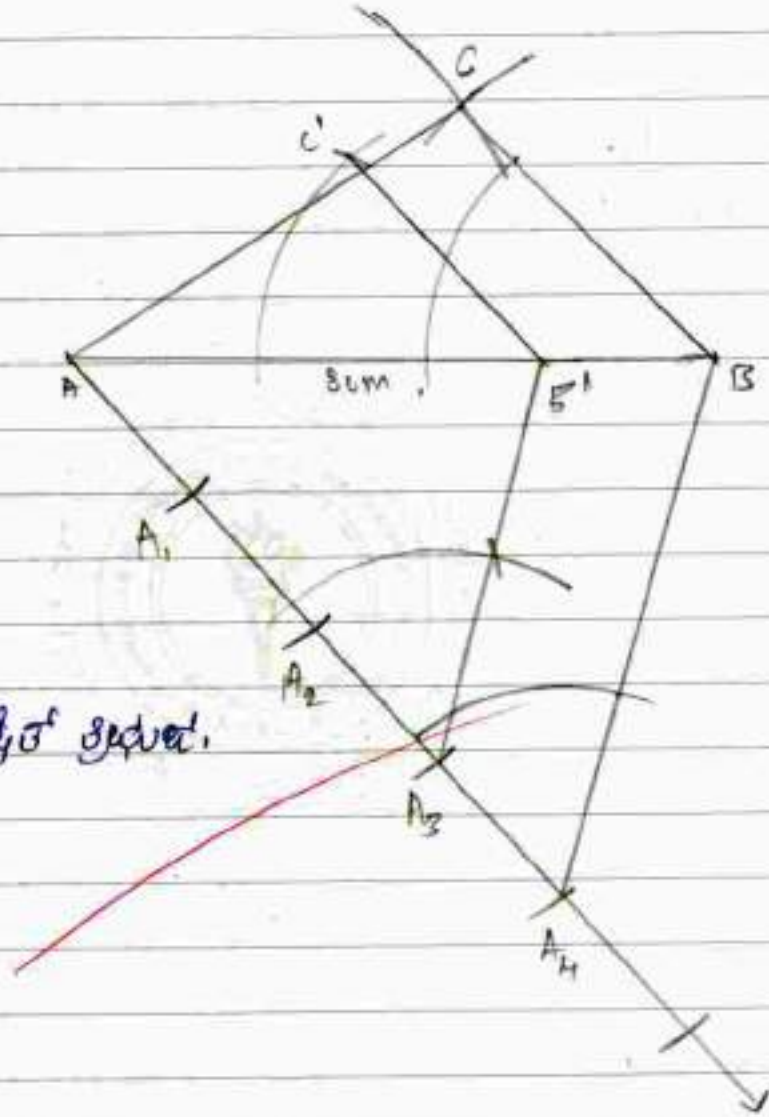 C
C'
A
8cm.
B'
B
A₁
A₂
A₃
A₄